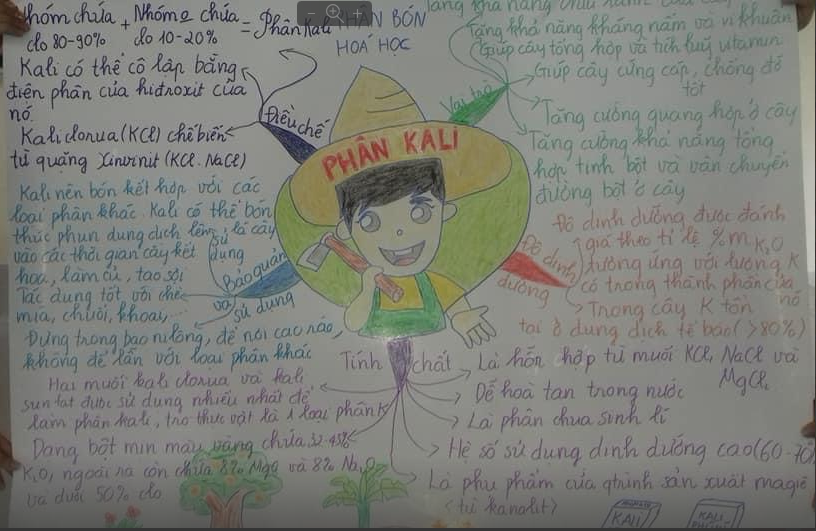 Nhóm chứa + Nhóm 2 chứa = Phân Kali
clo 80-90% clo 10-20%
Kali có thể cô lập bằng
điện phân của hiđroxit của
nó.
Kali clorua (KCl) chế biến
từ quặng Xinvinit (KCl. NaCl)
Điều chế
PHÂN BÓN
HOÁ HỌC
PHÂN KALI
Vai trò
Tăng khả năng
Tăng khả năng kháng nấm và vi khuẩn
Giúp cây tổng hợp và tích luỹ vitamin
Giúp cây cứng cáp, chống đổ
tốt
Tăng cường quang hợp ở cây
Tăng cường khả năng tổng
hợp tinh bột và vận chuyển
đường bột ở cây
Kali nên bón kết hợp với các
loại phân khác. Kali có thể bón
thúc phun dung dịch lên lá cây
vào các thời gian cây kết
hoa, làm củ, tạo sợi
Tác dụng tốt với chè
mía, chuối, khoai,...
Đựng trong bao nilông, để nơi cao ráo,
không để lẫn với loại phân khác
Bảo quản
và sử dụng
Độ dinh
dưỡng
Độ dinh dưỡng được đánh
giá theo tỉ lệ %m K2O
tương ứng với lượng K
có trong thành phần của
nó
Trong cây K tồn
tại ở dung dịch tế bào (>80%)
Tính chất
Hai muối kali clorua và kali
sunfat được sử dụng nhiều nhất để
làm phân kali, tro thực vật là 1 loại phân K
Dạng bột mịn màu vàng chứa 32-45%
K2O, ngoài ra còn chứa 8% MgO và 8% Na2O
và dưới 50% clo
Là hỗn hợp từ muối KCl, NaCl và
MgCl2
Dễ hoà tan trong nước
Là phân chua sinh lí
Hệ số sử dụng dinh dưỡng cao (60-70%
Là phụ phẩm của qtrình sản xuất magiê
(từ kanalit)
KALI
KALI